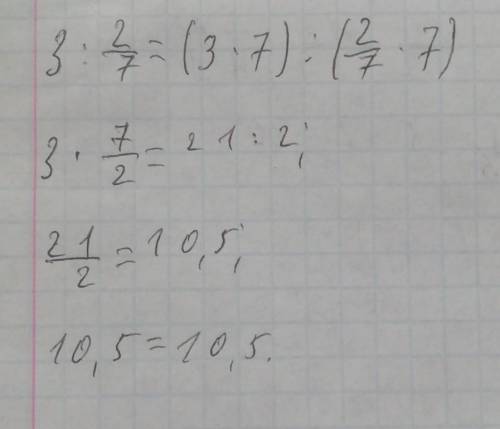 3 : 2/7 = (3 · 7) : (2/7 · 7)
3 · 7/2 = 21 : 2;
21/2 = 10,5;
10,5 = 10,5.